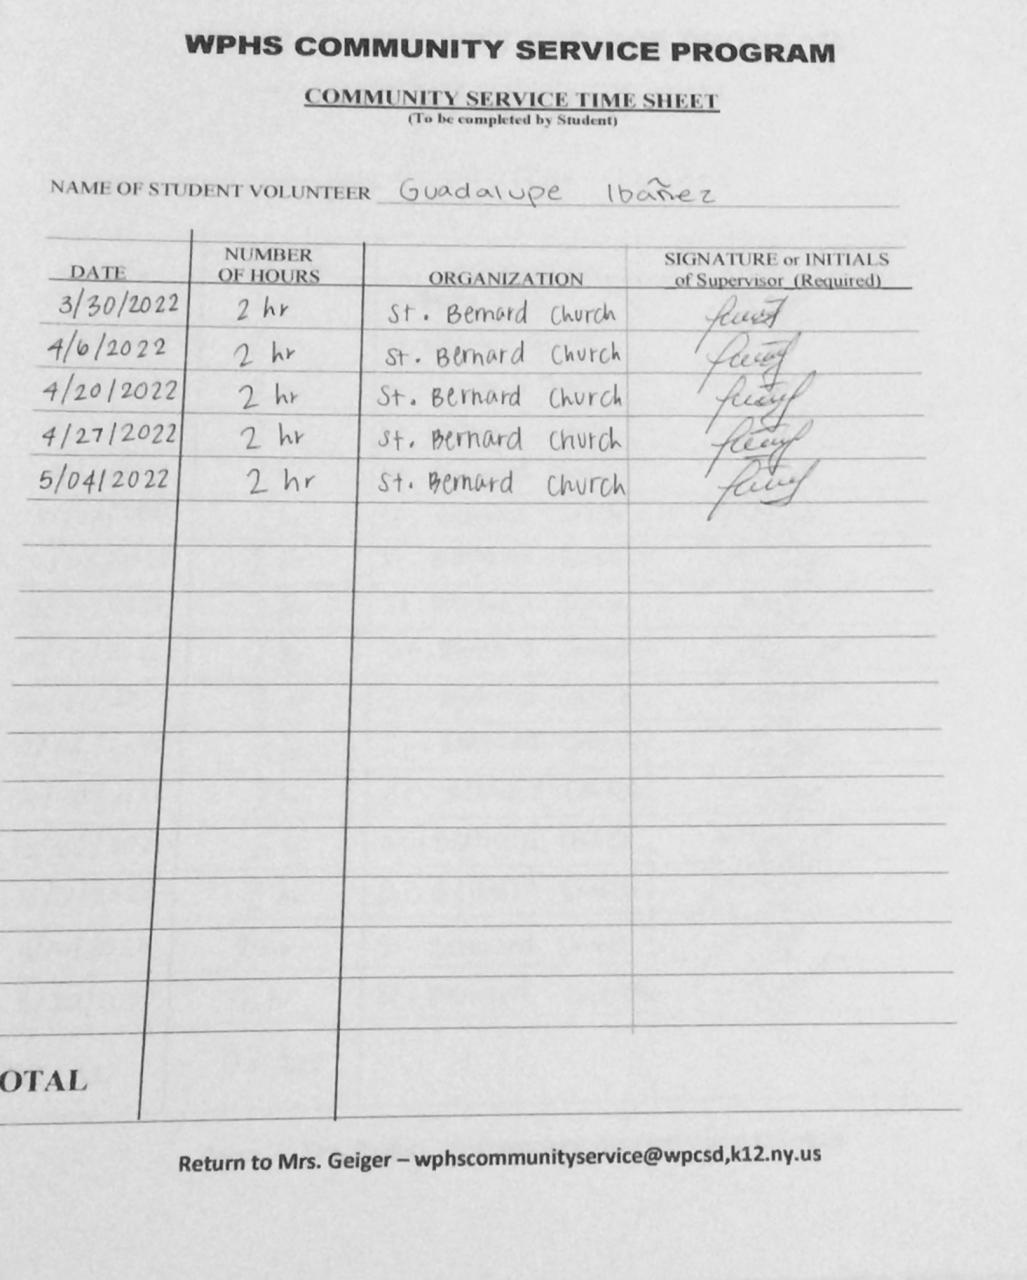 WPHS COMMUNITY SERVICE PROGRAM
COMMUNITY SERVICE TIME SHEET
(To be completed by Student)
NAME OF STUDENT VOLUNTEER Guadalupe Ibañez
DATE NUMBER OF HOURS ORGANIZATION SIGNATURE or INITIALS of Supervisor (Required)
3/30/2022 2 hr St. Bernard Church
4/6/2022 2 hr St. Bernard Church
4/20/2022 2 hr St. Bernard Church
4/27/2022 2 hr St. Bernard Church
5/04/2022 2 hr St. Bernard Church
OTAL
Return to Mrs. Geiger – wphscommunityservice@wpcsd,k12.ny.us